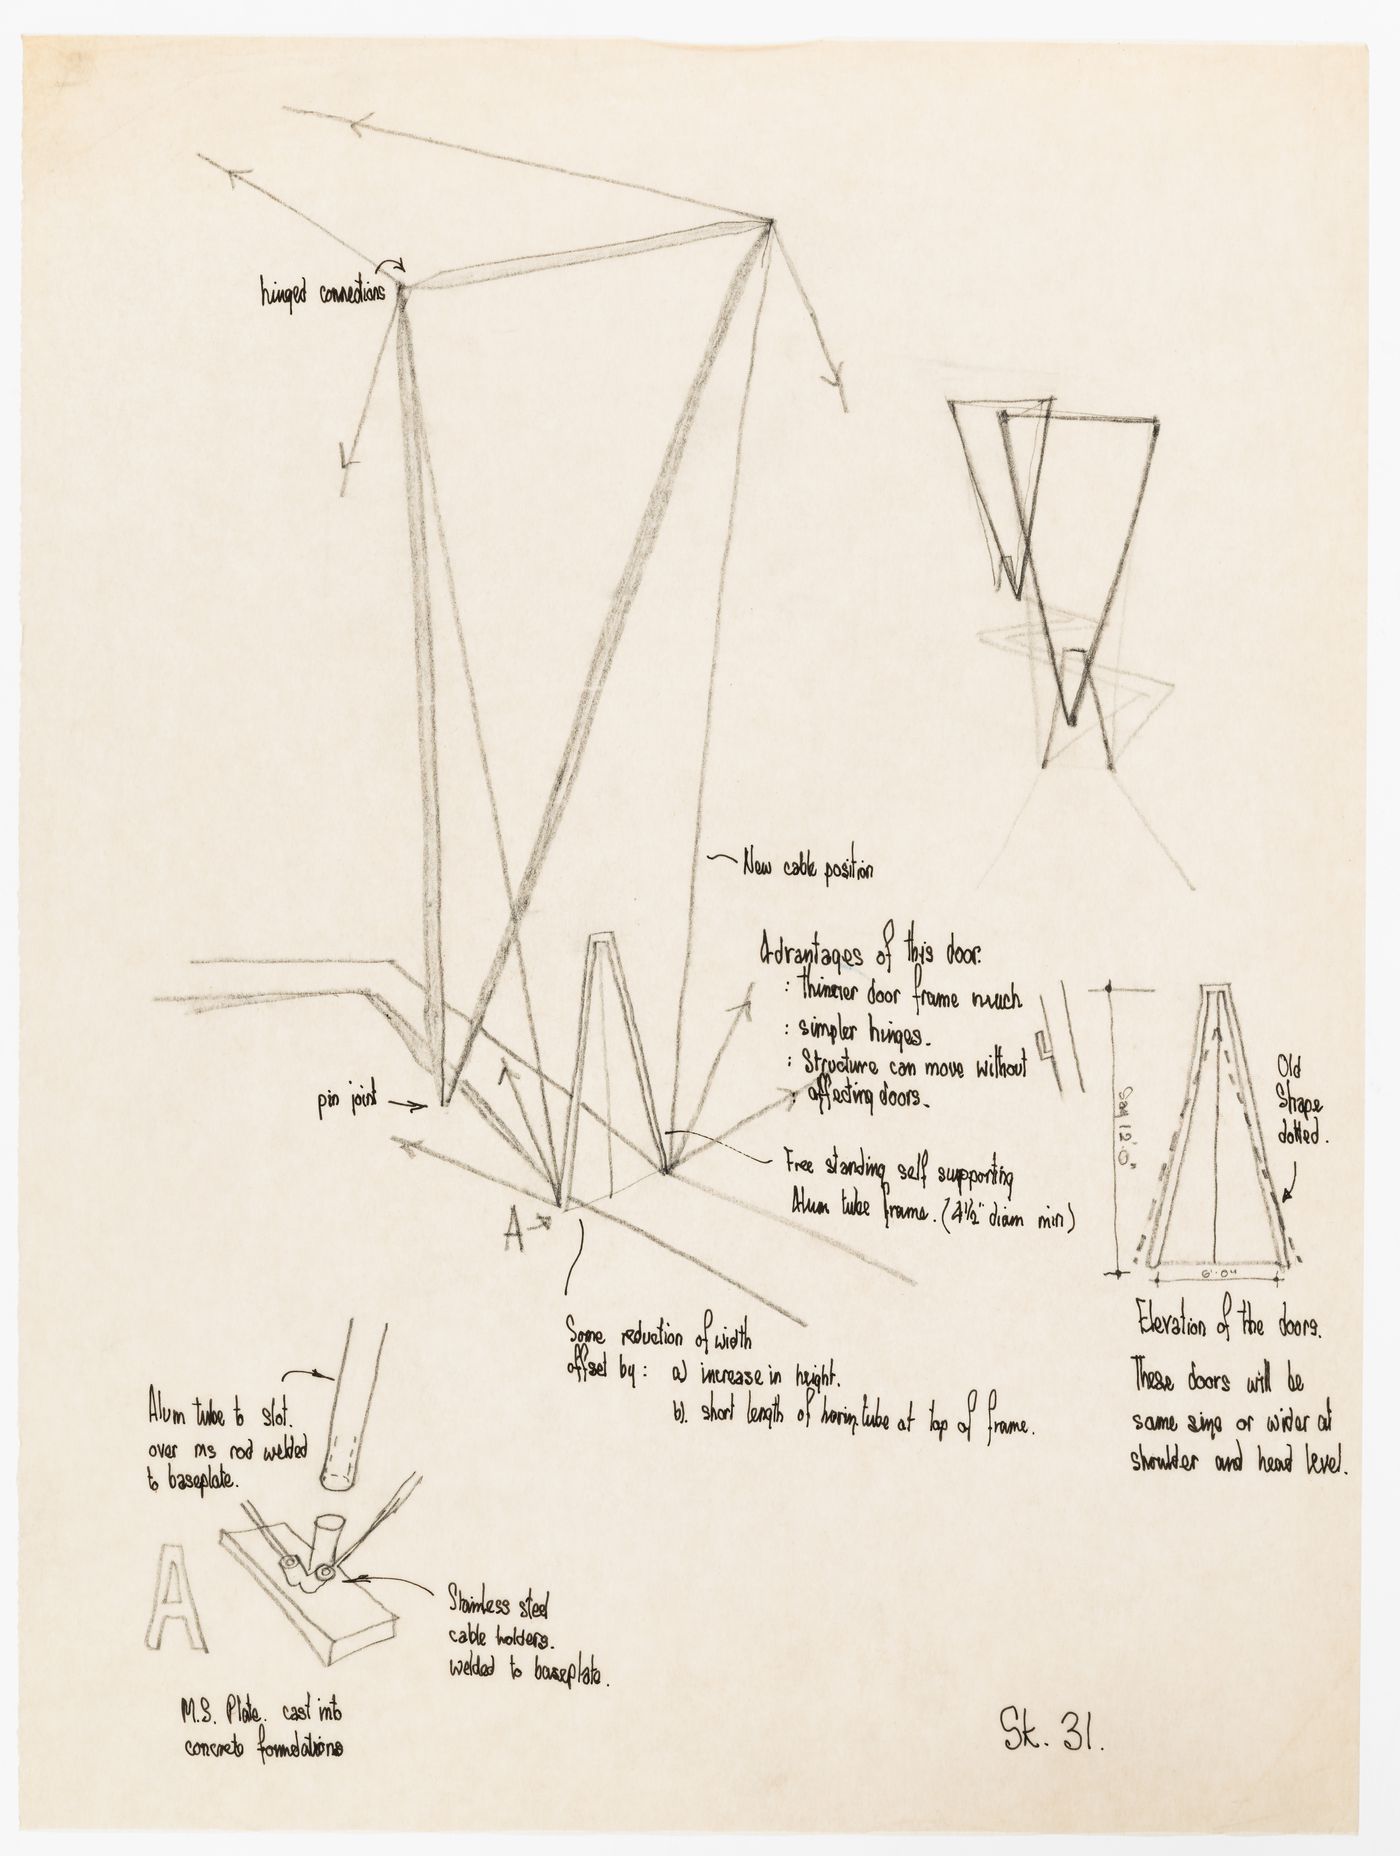 hinged connections
New cable position
Advantages of this door:
: thinner door frame much
: simpler hinges.
: Structure can move without
: affecting doors.
pin joint
Free standing self supporting
Alum tube frame. (4½" diam min)
A
Some reduction of width
offset by: a) increase in height.
b). short length of horiz. tube at top of frame.
Say 12'.0"
Old
Shape
dotted.
6'.0"
Elevation of the doors.
These doors will be
same size or wider at
shoulder and head level.
Alum tube to slot.
over ms rod welded
to baseplate.
A
Stainless steel
cable holders.
welded to baseplate.
M.S. Plate. cast into
concrete foundations
Sk. 31.